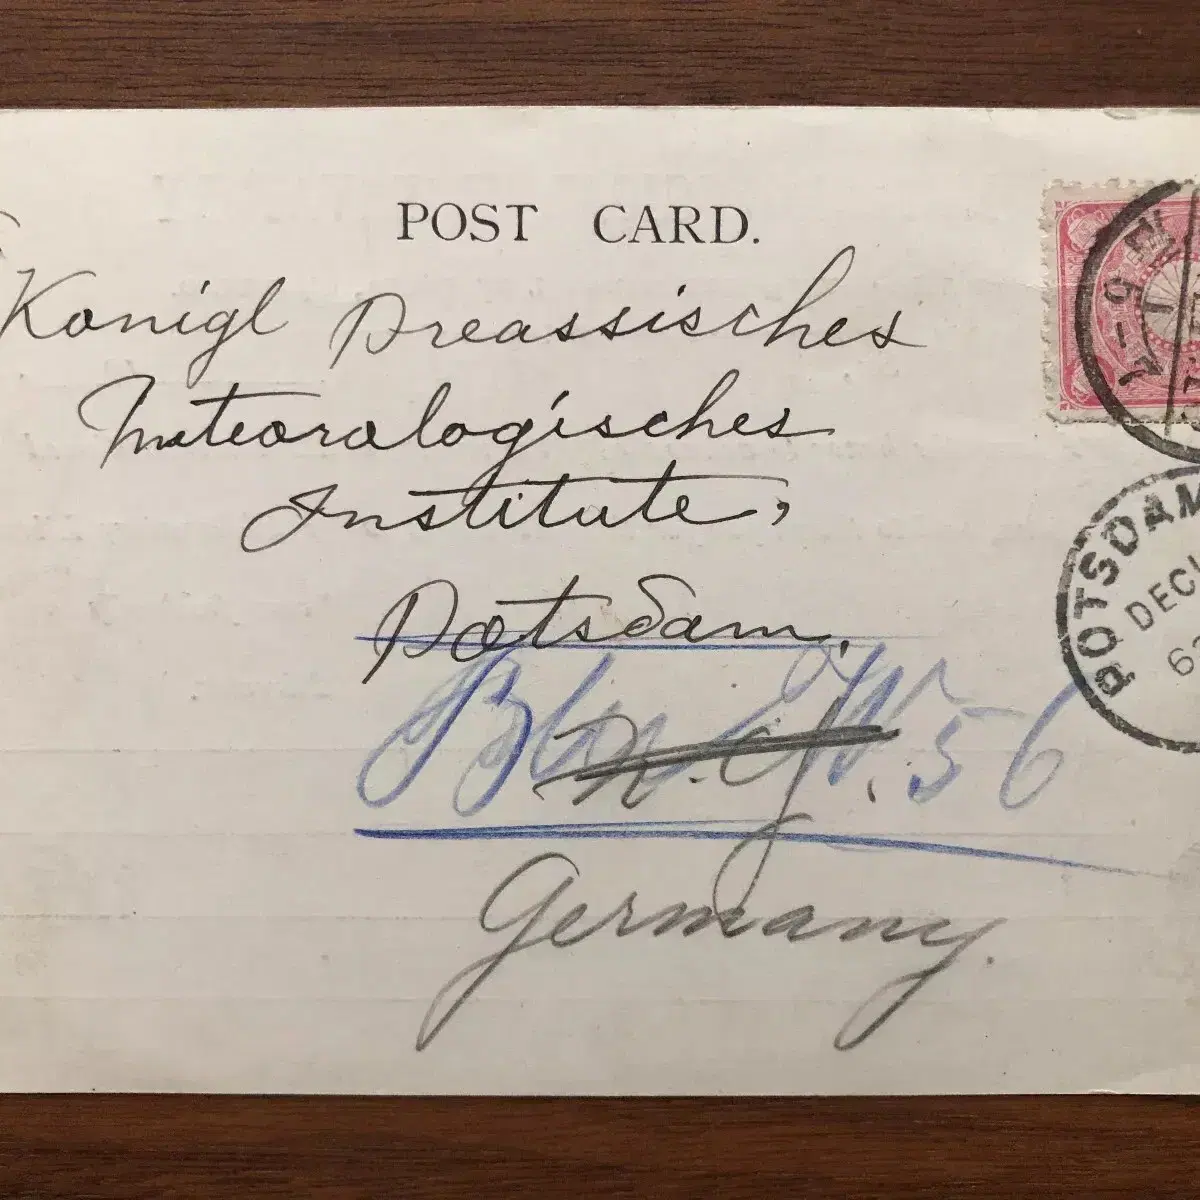 POST CARD.
Konigl Preassisches
Meteorologisches
Institute,
Potsdam.
Bln W. 56
N. Y.
Germany.
POTSDAM
DEC
5-1